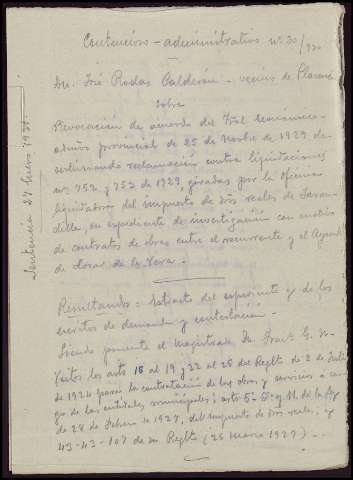 Contencioso-administrativo nº 30/930
Dn. José Rodas Calderón - vecino de Plasencia
sobre
Revocación de acuerdo del Tral Económico-
admvo provincial de 25 de Novbre de 1929 de-
sestimando reclamación contra liquidaciones
nos 752 y 753 de 1929, giradas por la oficina
liquidadora del impuesto de dros reales de Jaran-
dilla, en expediente de investigación con motivo
de contratos de obras entre el recurrente y el Ayunto
de Losar de la Vera.-
Sentencia 27 Enero 1931
Resultando: extracto del expediente y de los
escritos de demanda y contestación.-
Siendo ponente el Magistrado Dn.
Vistos los arts 18 al 19 y 22 al 26 del Reglto de 2 de Julio
de 1924 para la contratación de las obras y servicios a car-
go de las entidades municipales; arts 5-8-9 y 11 de la ley
de 28 de Febrero de 1927, del impuesto de dros reales, y
43-43-107 de su Reglto (26 Marzo 1927)